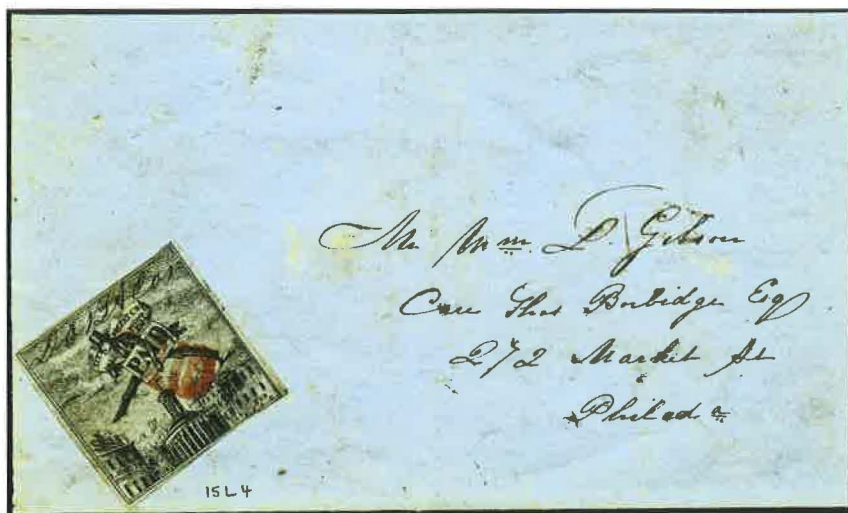 Mr Wm. L. Gibson
Care Thos Borbidge Esq
272 Market St
Philada
15L4